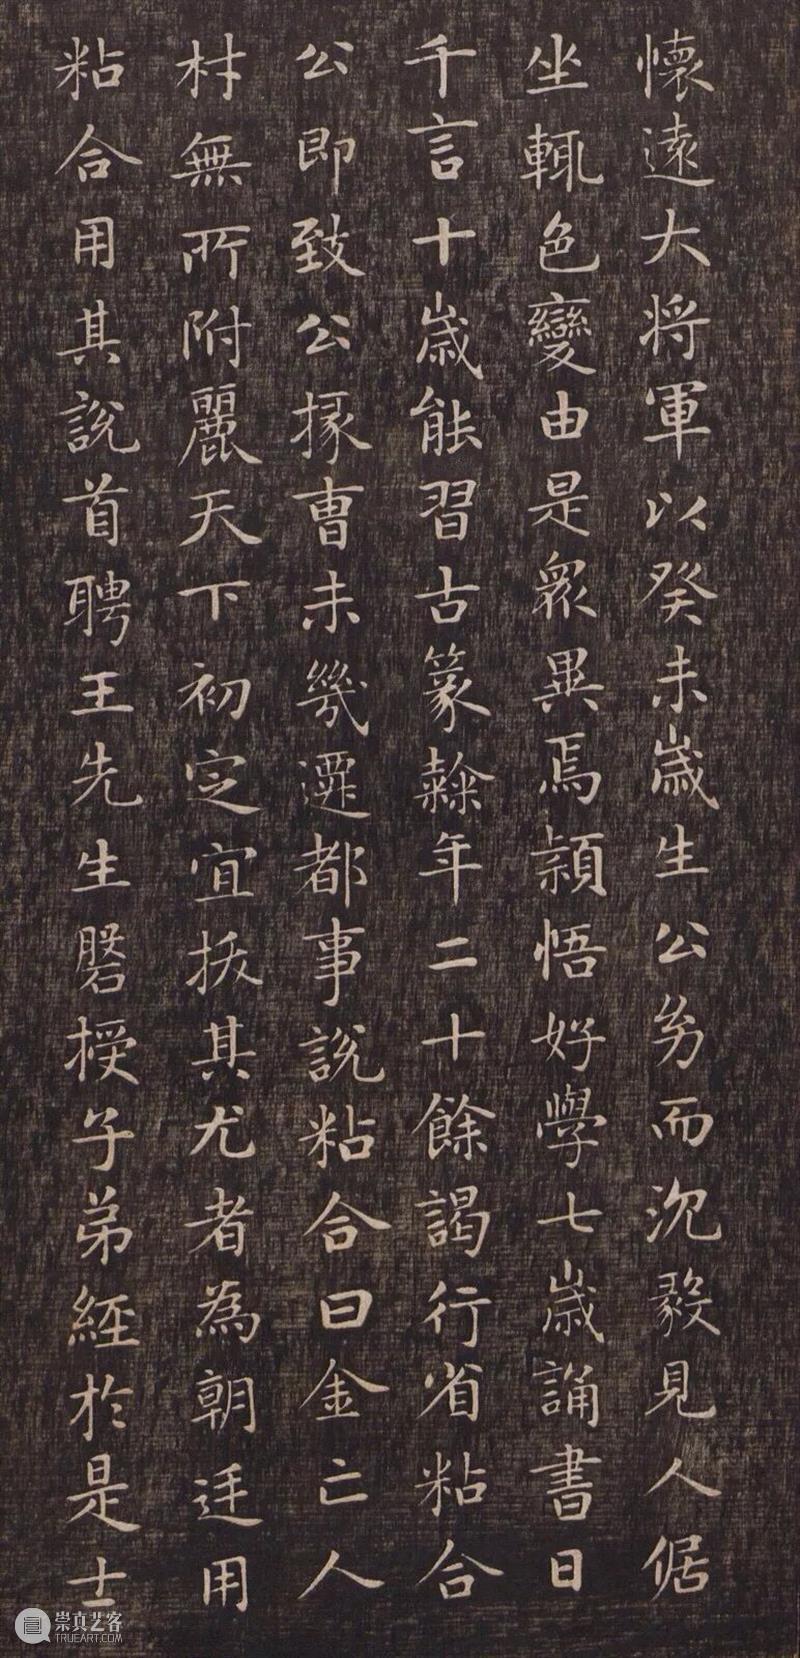 懷遠大将軍以癸未歲生公㓜而沉毅見人倨
坐輒色變由是衆異焉頴悟好學七歲誦書日
千言十歲能習古篆𨽻年二十餘謁行省粘合
公即致公掾曹未幾遷都事說粘合曰金亡人
材無所附麗天下初定宜拔其尤者為朝廷用
粘合用其說首聘王先生磐授子弟經於是士
崇真艺客
TRUEART.COM